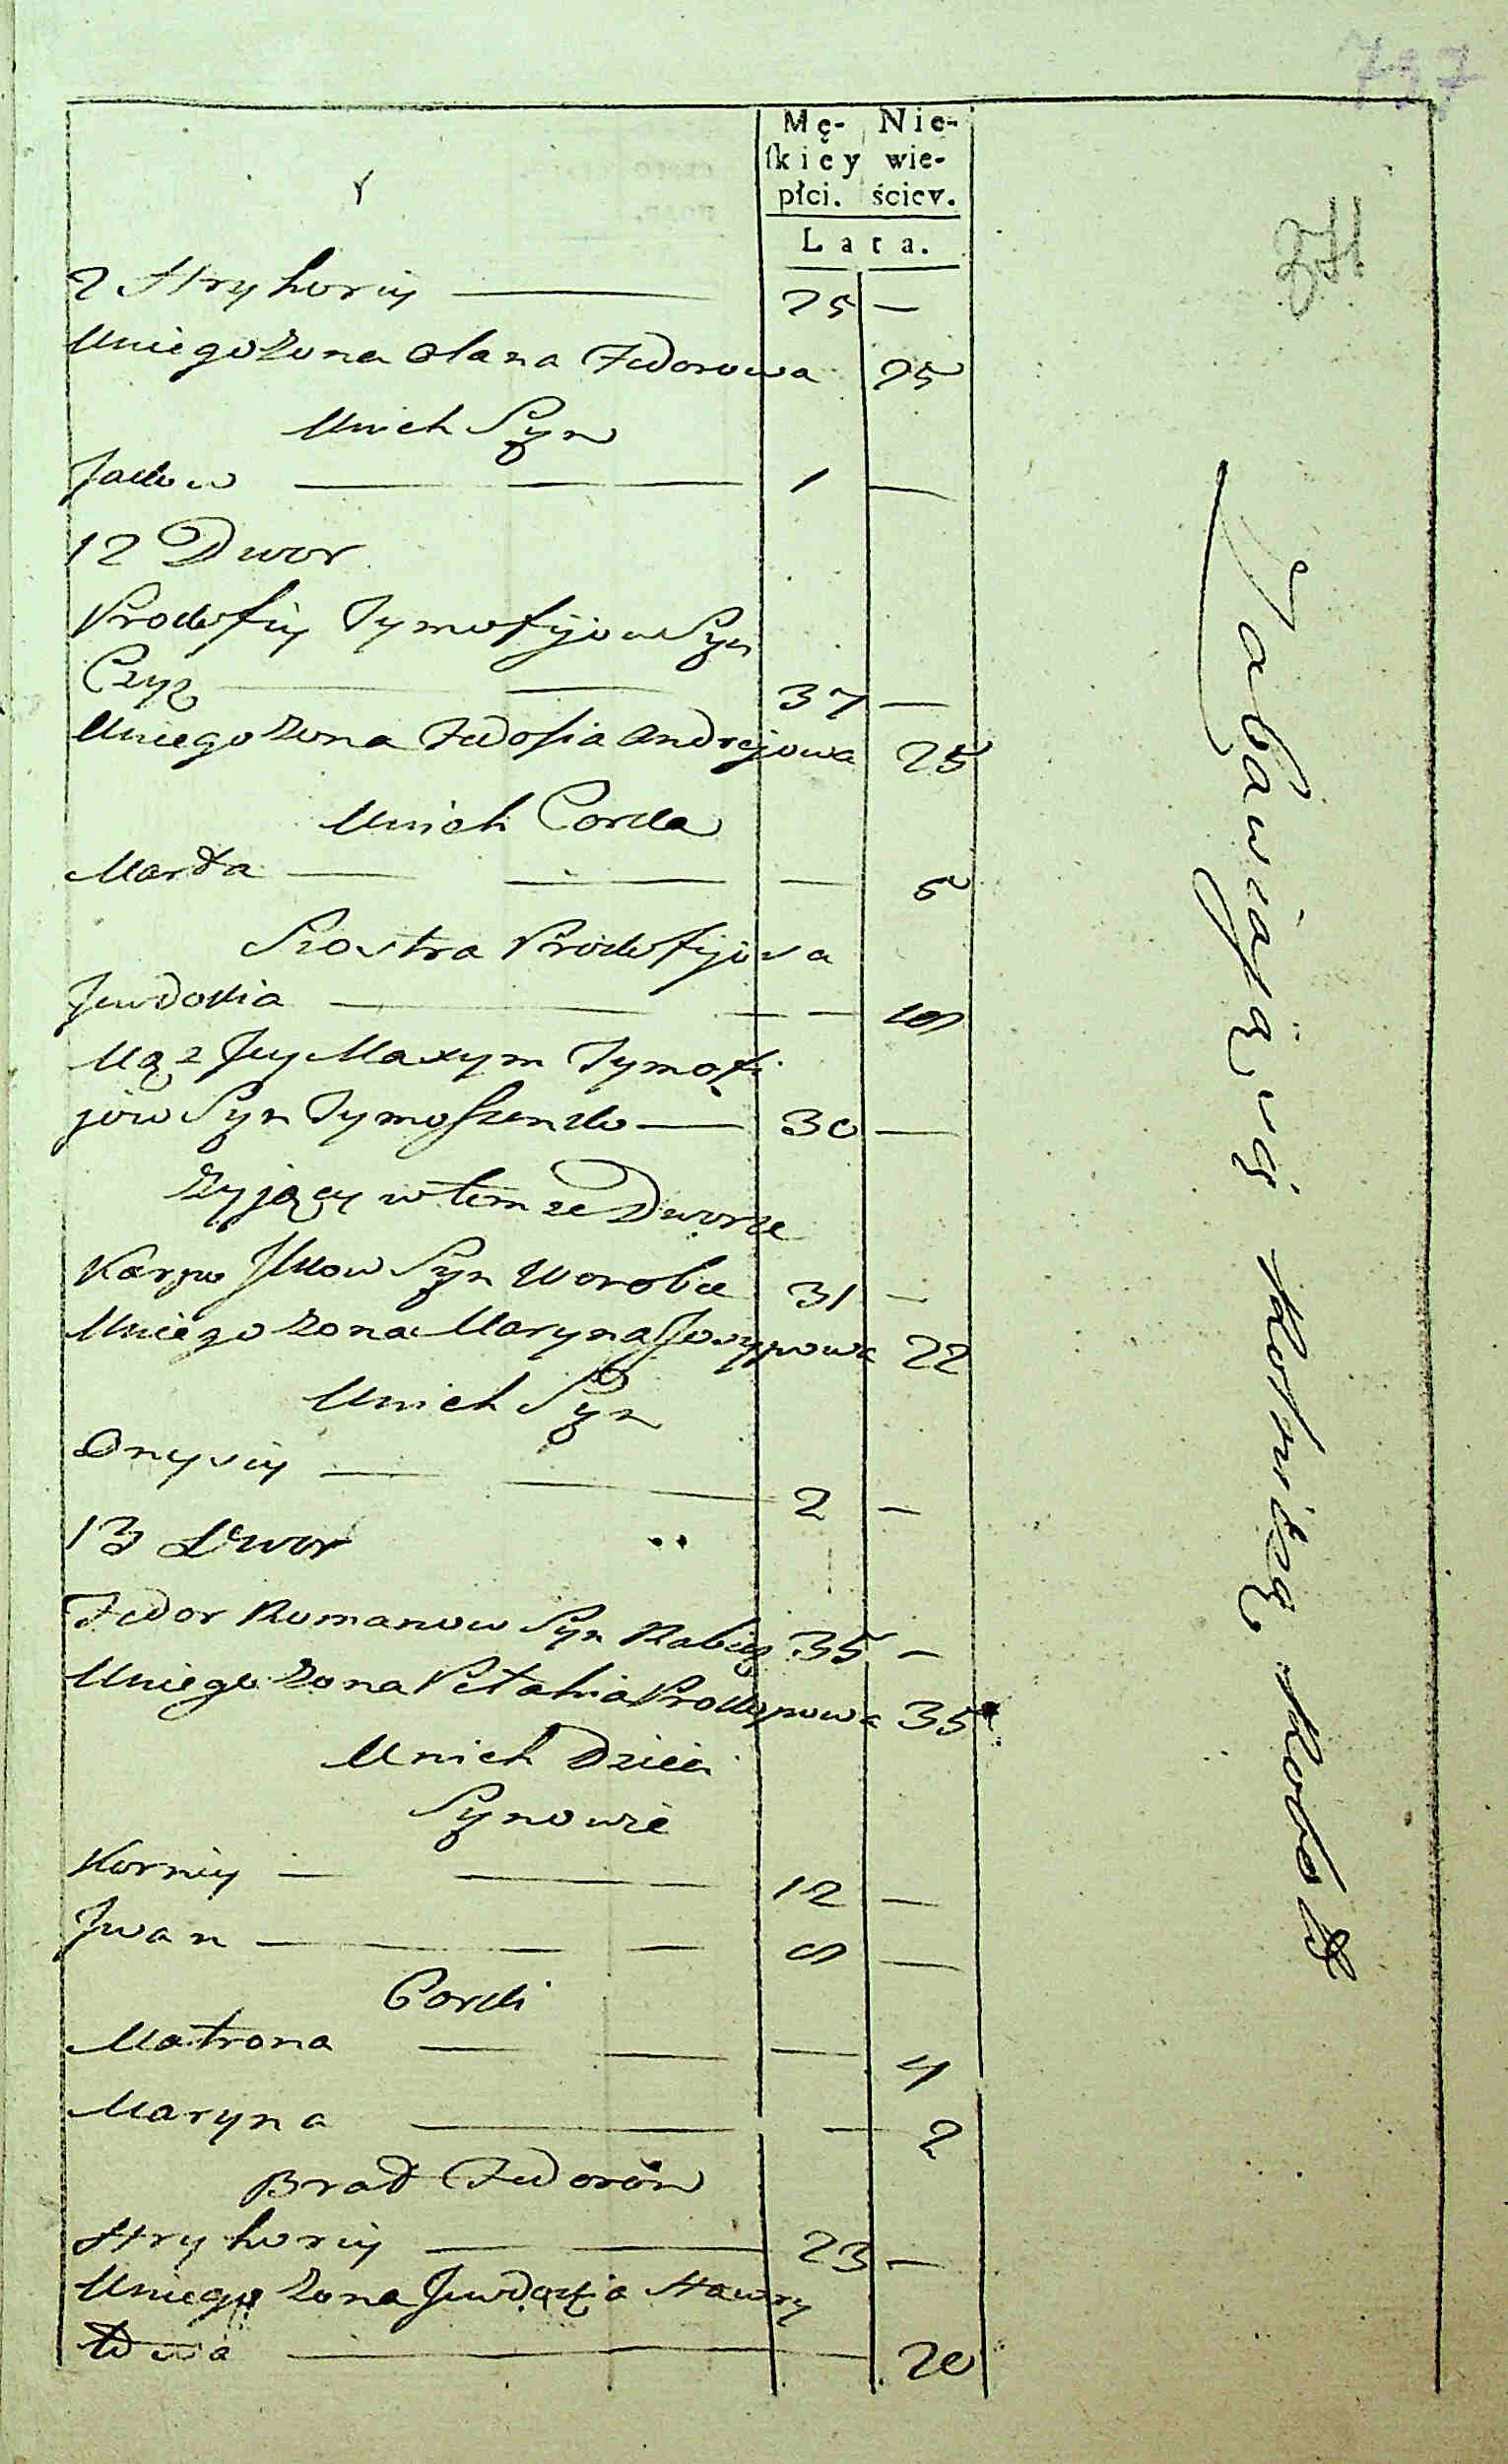 797
Mę- Nie-
ſkiey wie-
płci. ściey.
Lata.
2 Hryhoriy — 25 —
Uniego Zona Olana Fedorowa 25
Unich Syn
Jakow — 1 —
12 Dwor
Prokofiy Tymofijow Syn
Czyz — 37 —
Uniego Zona Fedosia Andrejowa 25
Unich Corka
Marta — — 5
Siostra Prokofijowa
Jewdokia — —
Mąz Jey Maxym Tymofi
jow Syn Tymoszenko — 30 —
Zyjący w tem ze Dworze
Karpo Jlkow Syn Worobec 31 —
Uniego Zona Maryna Josypowa 22
Unich Syn
Onysiy — 2 —
13 Dwor
Fedor Romanow Syn 35 —
Uniego Zona Petahia Prokopowa 35
Unich Dzieci
Synowie
Korniy — 12 —
Jwan — 9 —
Corki
Matrona — — 4
Maryna — — 2
Brat Fedorów
Hryhoriy — 23 —
Uniego Zona Jewdokia Hawry
łowa — 20
Zabawiaią się Rolniczą Robotą